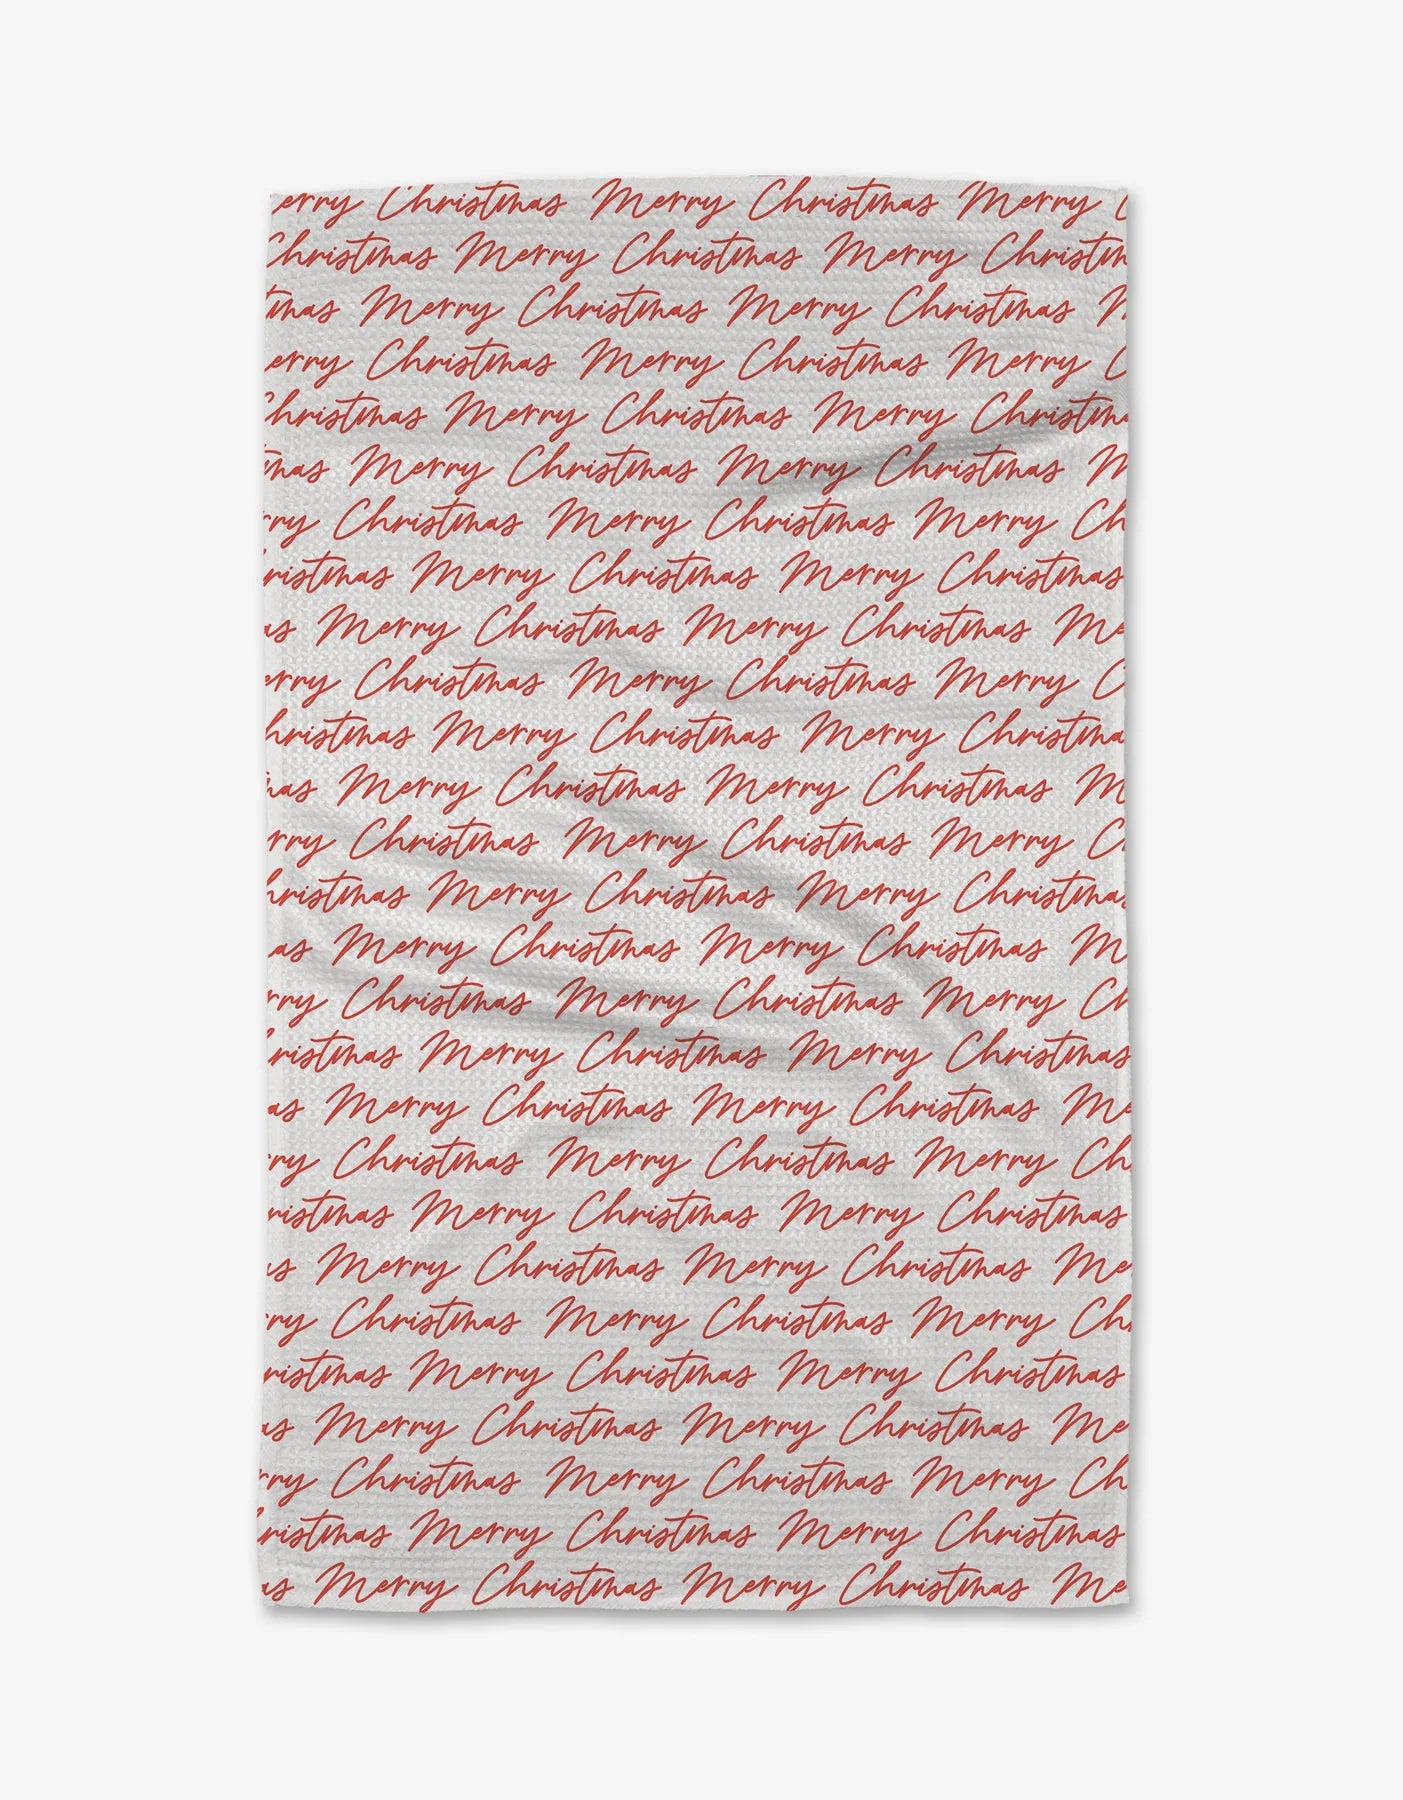 erry Christmas Merry Christmas Merry C
Christmas Merry Christmas Merry Christm
tmas Merry Christmas Merry Christmas M
erry Christmas Merry Christmas Merry C
Christmas Merry Christmas Merry Christma
mas Merry Christmas Merry Christmas M
rry Christmas Merry Christmas Merry Ch
ristmas Merry Christmas Merry Christmas
as Merry Christmas Merry Christmas Me
erry Christmas Merry Christmas Merry C
hristmas Merry Christmas Merry Christma
mas Merry Christmas Merry Christmas M
rry Christmas Merry Christmas Merry C
hristmas Merry Christmas Merry Christmas
as Merry Christmas Merry Christmas M
rry Christmas Merry Christmas Merry Ch
ristmas Merry Christmas Merry Christmas
as Merry Christmas Merry Christmas Me
ry Christmas Merry Christmas Merry Ch
ristmas Merry Christmas Merry Christmas
as Merry Christmas Merry Christmas Me
ry Christmas Merry Christmas Merry Ch
ristmas Merry Christmas Merry Christmas
as Merry Christmas Merry Christmas Me
rry Christmas Merry Christmas Merry Ch
hristmas Merry Christmas Merry Christmas
as Merry Christmas Merry Christmas Me